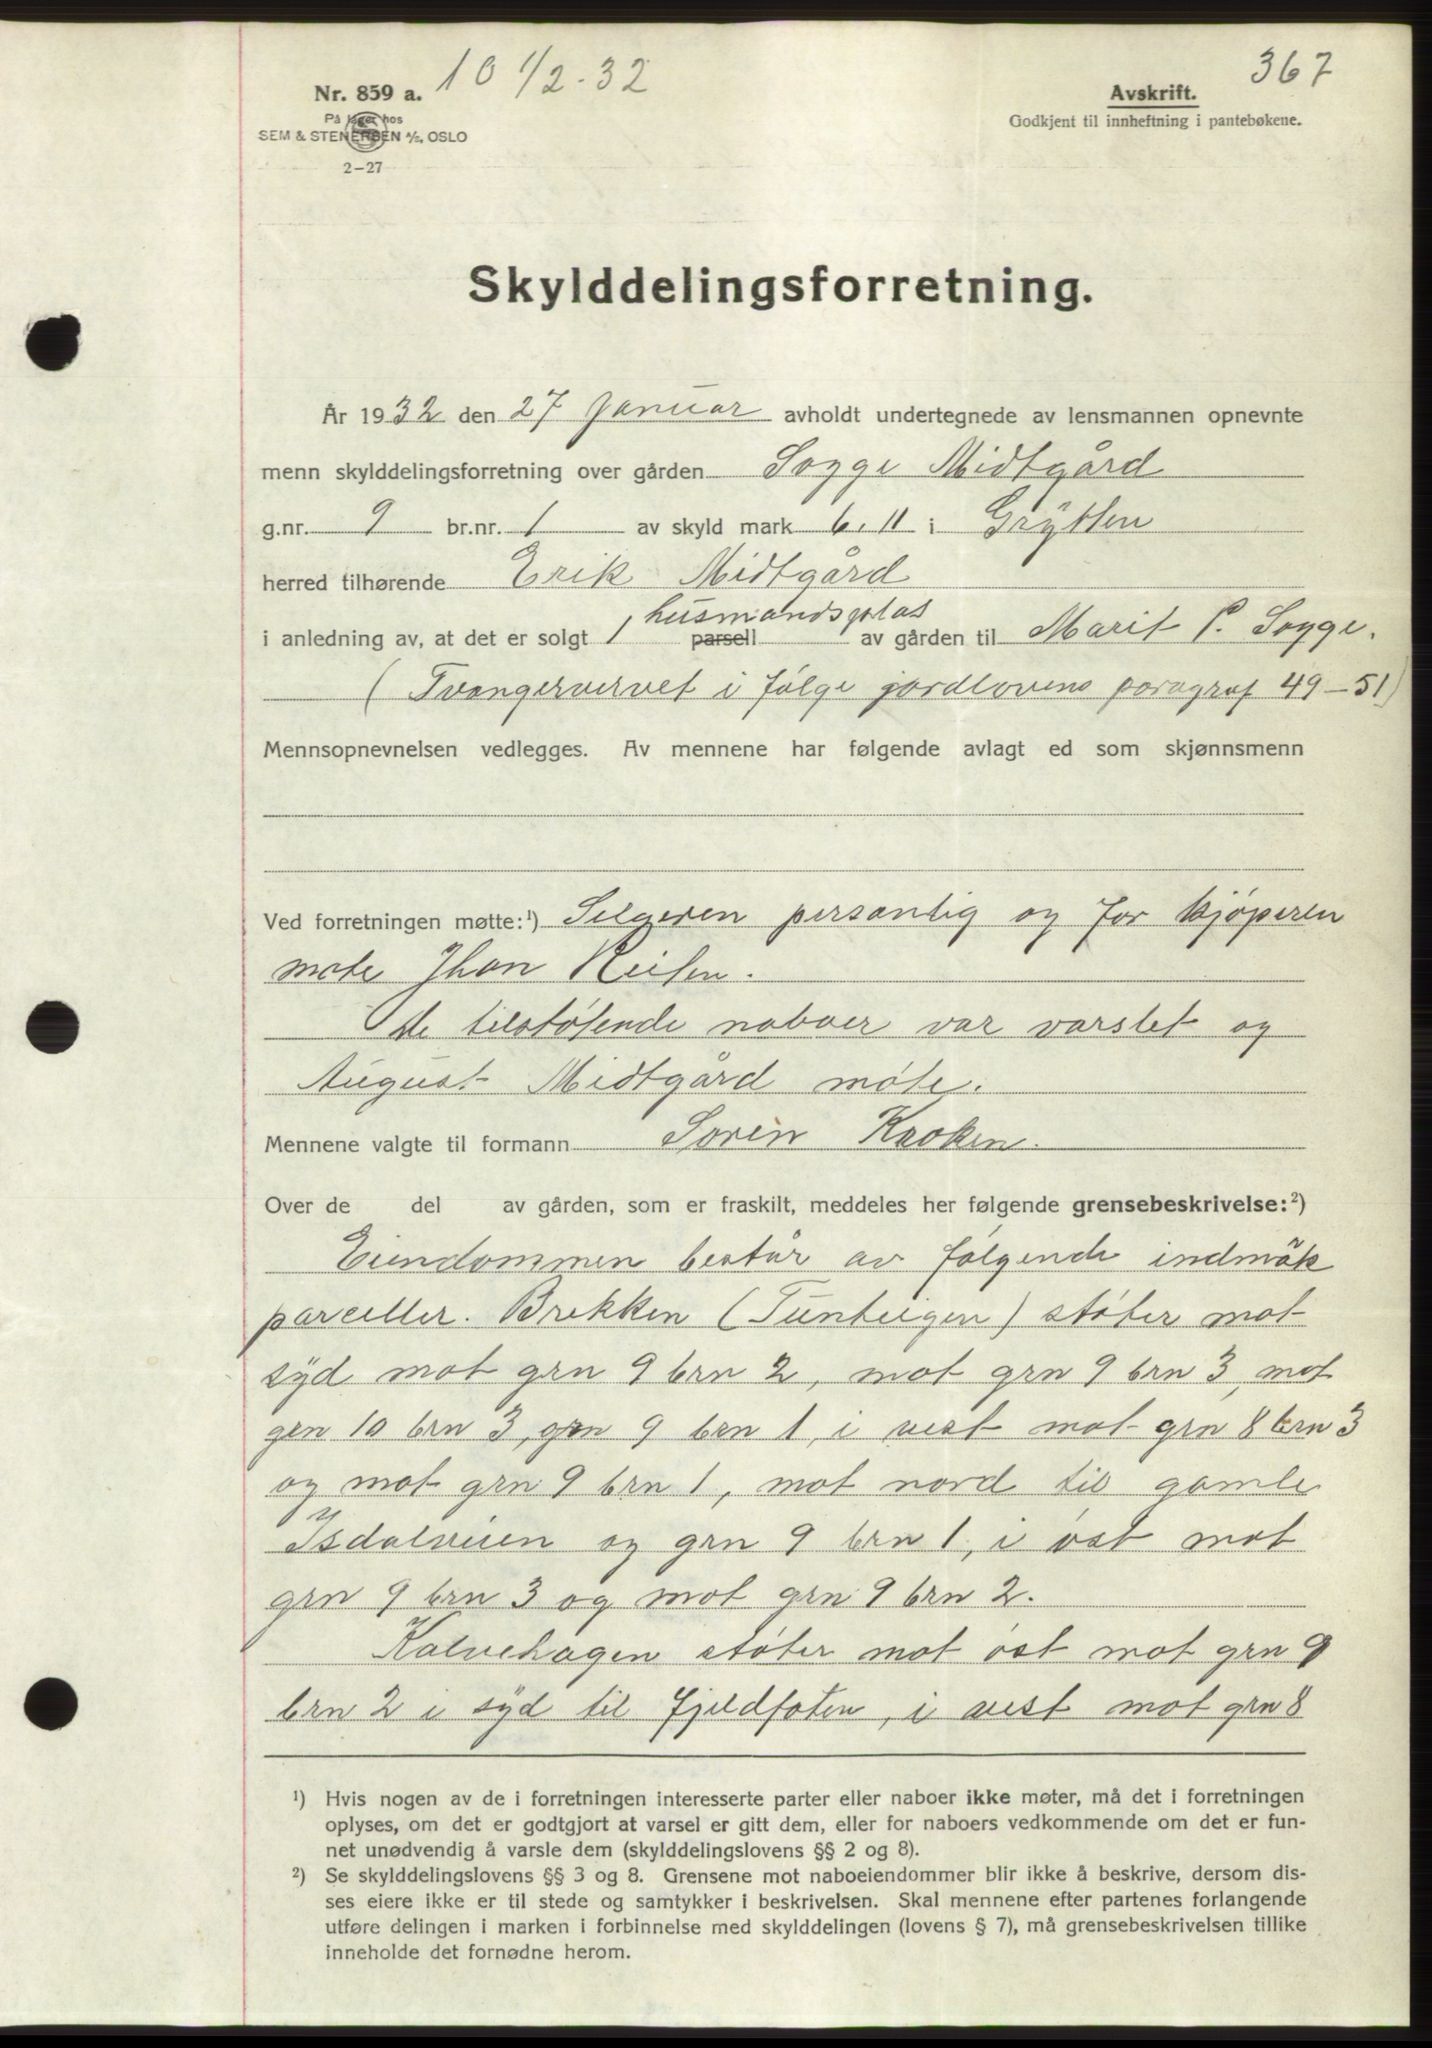 367
10 1/2-32
Nr. 859 a.
På lager hos
SEM & STENERSEN A/S, OSLO
2–27
Avskrift.
Godkjent til innheftning i pantebøkene.
Skylddelingsforretning.
År 1932 den 27 januar avholdt undertegnede av lensmannen opnevnte
menn skylddelingsforretning over gården Sogge Midtgård
g.nr. 9 br.nr. 1 av skyld mark 6.11 i Grytten
herred tilhørende Erik Midtgård
husmandsplas
i anledning av, at det er solgt 1 parsell av gården til Marit P. Sogge.
(Tvangservervet i følge jordlovens paragraf 49–51)
Mennsopnevnelsen vedlegges. Av mennene har følgende avlagt ed som skjønnsmenn
Ved forretningen møtte:¹) Selgeren personlig og for kjøperen
møte Jhon Reiten.
De tilstøtende naboer var varslet og
August Midtgård møte.
Mennene valgte til formann Søren Kroken.
Over de del av gården, som er fraskilt, meddeles her følgende grensebeskrivelse:²)
Eiendommen består av følgende indmåk
parceller. Brekken (Tunteigen) støter mot
syd mot grn 9 brn 2, mot grn 9 brn 3, mot
gen 10 brn 3, grn 9 brn 1, i vest mot grn 8 brn 3
og mot grn 9 brn 1, mot nord til gamle
Isdalveien og grn 9 brn 1, i øst mot
grn 9 brn 3 og mot grn 9 brn 2.
Kalvehagen støter mot øst mot grn 9
brn 2 i syd til fjeldfoten, i vest mot grn 8
¹) Hvis nogen av de i forretningen interesserte parter eller naboer ikke møter, må det i forretningen
oplyses, om det er godtgjort at varsel er gitt dem, eller for naboers vedkommende om det er fun-
net unødvendig å varsle dem (skylddelingslovens §§ 2 og 8).
²) Se skylddelingslovens §§ 3 og 8. Grensene mot naboeiendommer blir ikke å beskrive, dersom dis-
ses eiere ikke er til stede og samtykker i beskrivelsen. Skal mennene efter partenes forlangende
utføre delingen i marken i forbinnelse med skylddelingen (lovens § 7), må grensebeskrivelsen tillike
inneholde det fornødne herom.